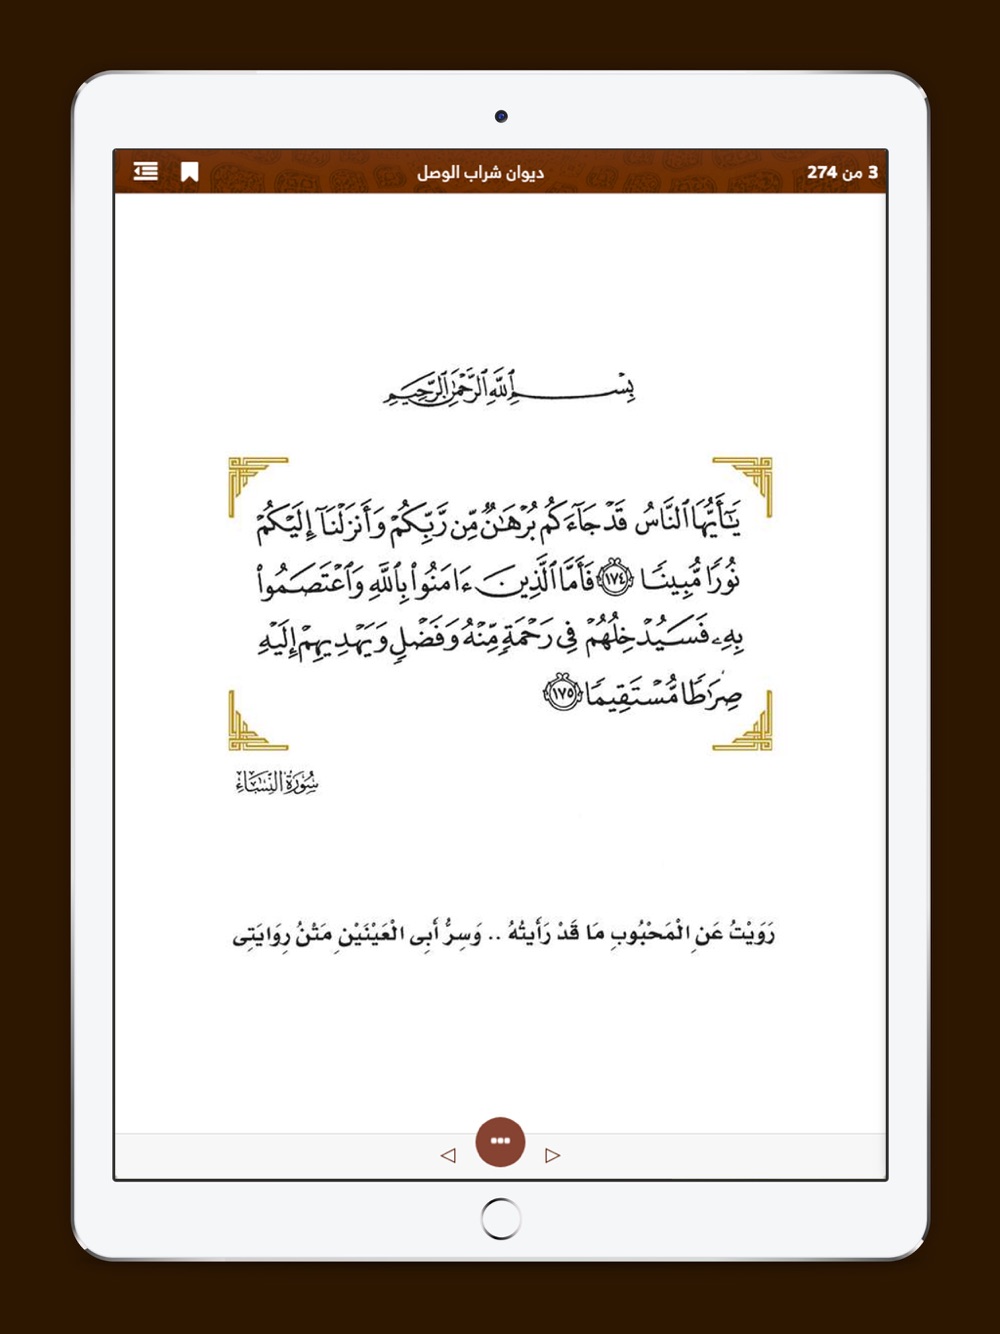 3 من 274
ديوان شراب الوصل
بِسْمِ ٱللَّهِ ٱلرَّحْمَٰنِ ٱلرَّحِيمِ
يَٰٓأَيُّهَا ٱلنَّاسُ قَدْ جَآءَكُم بُرْهَٰنٌ مِّن رَّبِّكُمْ وَأَنزَلْنَآ إِلَيْكُمْ
نُورًا مُّبِينًا ١٧٤ فَأَمَّا ٱلَّذِينَ ءَامَنُوا۟ بِٱللَّهِ وَٱعْتَصَمُوا۟
بِهِۦ فَسَيُدْخِلُهُمْ فِى رَحْمَةٍ مِّنْهُ وَفَضْلٍ وَيَهْدِيهِمْ إِلَيْهِ
صِرَٰطًا مُّسْتَقِيمًا ١٧٥
سُورَةُ النِّسَاءِ
رَوَيْتُ عَنِ الْمَحْبُوبِ مَا قَدْ رَأَيتُهُ .. وَسِرُّ أَبِى الْعَيْنَيْنِ مَتْنُ رِوَايَتِى